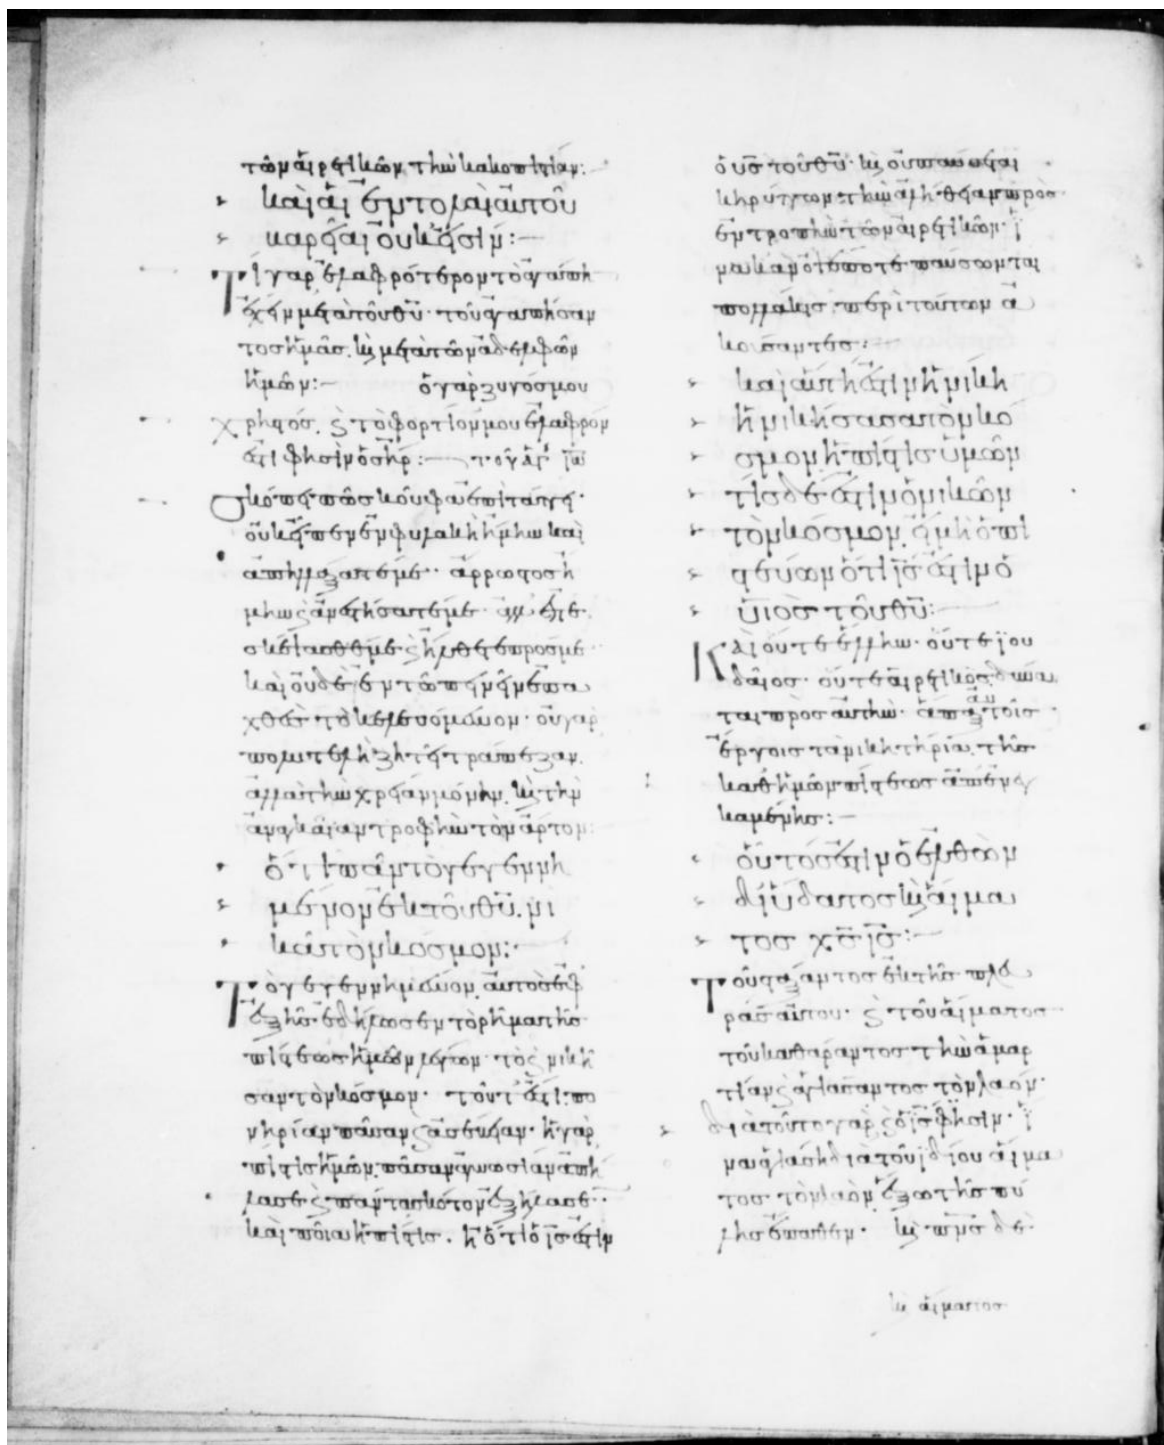 τῶν αἱρετικῶν τὴν κακοπιστίαν:
καὶ αἱ ἐντολαὶ αὐτοῦ
βαρεῖαι οὐκ εἰσίν:
Τί γὰρ ἐλαφρότερον τὸ ἀγάπην
ἔχειν μετὰ τοῦ θυ. τοῦ ἀγαπήσαν
τος ἡμᾶς. κ μετὰ τῶν ἀδελφῶν
ἡμῶν: ὁ γὰρ ζυγός μου
χρηστός. κ τὸ φορτίον μου ἐλαφρόν
ἐστι φησὶν ὁ σηρ: τοῦ ἁγ ἰω
Σκόπει πῶς κοῦφα ἐπιτάττει.
οὐκ εἶπεν ἐν φυλακῇ ἤμην καὶ
ἀπηλλάξατέ με. ἄρρωστος ἤ
μην κ ἀνεστήσατέ με. ἀλλ ἐπε
σκέψασθέ με. κ ἤλθετε πρός με.
καὶ οὐδὲ ἐν τῷ πεινῆν ἐπα
χθὲς τὸ κελευόμενον. οὐ γὰρ
πολυτελῆ ζητεῖ τράπεζαν.
ἀλλὰ τὴν χρείαν μόνην. κ τὴν
ἀναγκαίαν τροφὴν τὸν ἄρτον:
ὅτι πᾶν τὸ γεγεννη
μένον ἐκ τοῦ θυ. νι
κᾷ τὸν κόσμον:
Τὸ γεγεννημένον αὐτὸς ἐφ
ἑξῆς ἐδήλωσεν τὸ ῥῆμα τῆς
πίστεως ἡμῶν λέγων. τὸ κ νικῆ
σαν τὸν κόσμον. τοῦτ ἐστι. πο
νηρίαν πᾶσαν κ ἀσέβειαν. ἡ γὰρ
πίστις ἡμῶν. πᾶσαν ἀγνωσίαν ἀπή
λασε κ πάντα σκότον ἐξήλασε.
καὶ ποία ἡ πίστις. ἢ ὅτι ὁ ις ἐστιν
ὁ υς τοῦ θυ. κ οὐ παύεται
κηρύττων τὴν ἀλήθειαν πρὸς
ἐντροπὴν τῶν αἱρετικῶν. ἵ
να κἂν ὀψέποτε παύσωνται
πολλάκις περὶ τούτων ἀ
κούσαντες:
καὶ αὕτη ἐστὶν ἡ νίκη
ἡ νικήσασα τὸν κό
σμον ἡ πίστις ὑμῶν
τίς δέ ἐστιν ὁ νικῶν
τὸν κόσμον. εἰ μὴ ὁ πι
στεύων ὅτι ις ἐστιν ὁ
υἱὸς τοῦ θυ:
Καὶ οὔτε ἕλλην. οὔτε ἰου
δαῖος. οὔτε αἱρετικὸς δύνα
ται πρὸς αὐτὴν. τοῖς
ἔργοις τὰ νικητήρια. τῆς
καθ ἡμῶν πίστεως ἀπενεγ
καμένης:
οὗτός ἐστιν ὁ ἐλθὼν
δι ὕδατος κ αἵμα
τος χς ις:
Τοῦ στάξαντος ἐκ τῆς πλευ
ρᾶς αὐτοῦ. κ τοῦ αἵματος
τοῦ καθάραντος τὴν ἁμαρ
τίαν κ ἁγιάσαντος τὸν λαόν.
διὰ τοῦτο γὰρ κ ὁ ις φησιν. ἵ
να ἁγιάσῃ διὰ τοῦ ἰδίου αἵμα
τος τὸν λαὸν ἔξω τῆς πύ
λης ἔπαθεν. κ πνς δὲ
κ αἵματος